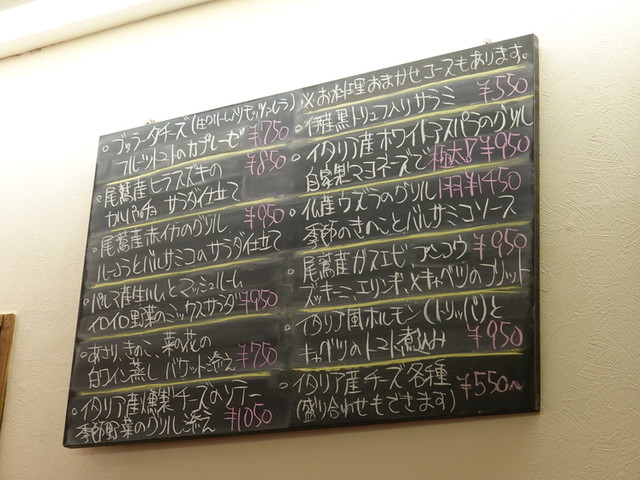 ブッラータチーズ(生クリーム入りモッツァレラ)
フルーツトマトのカプレーゼ ¥750
尾鷲産ヒラスズキの ¥850
カルパッチョ サラダ仕立て
尾鷲産赤イカのグリル ¥950
ルーコラとバルサミコのサラダ仕立て
パルマ産生ハムとマッシュルーム
イロイロ野菜のミックスサラダ ¥950
あさり、きのこ、菜の花の
白ワイン蒸し バケット添え ¥750
イタリア産燻製チーズのソテー
季節野菜のグリル添え ¥1050
※お料理おまかせコースもあります。
伊産黒トリュフ入りサラミ ¥550
イタリア産ホワイトアスパラのグリル
自家製マヨネーズで 極太! ¥950
仏産ウズラのグリル 1羽¥1450
季節のきのことバルサミコソース
尾鷲産ガスエビ アンコウ ¥950
ズッキーニ、エリンギ、メキャベツのフリット
イタリア風ホルモン(トリッパ)と
キャベツのトマト煮込み ¥950
イタリア産チーズ各種 ¥550〜
(盛り合わせもできます)